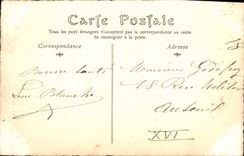 Carte Postale
Tous les pays étrangers n'acceptent pas la correspondance au recto.
Se renseigner à la poste.
Correspondance
Adresse
18
Bonne Santé
Monsieur Godefroy
Léon Blanche
18 Rue
Auteuil
XVI